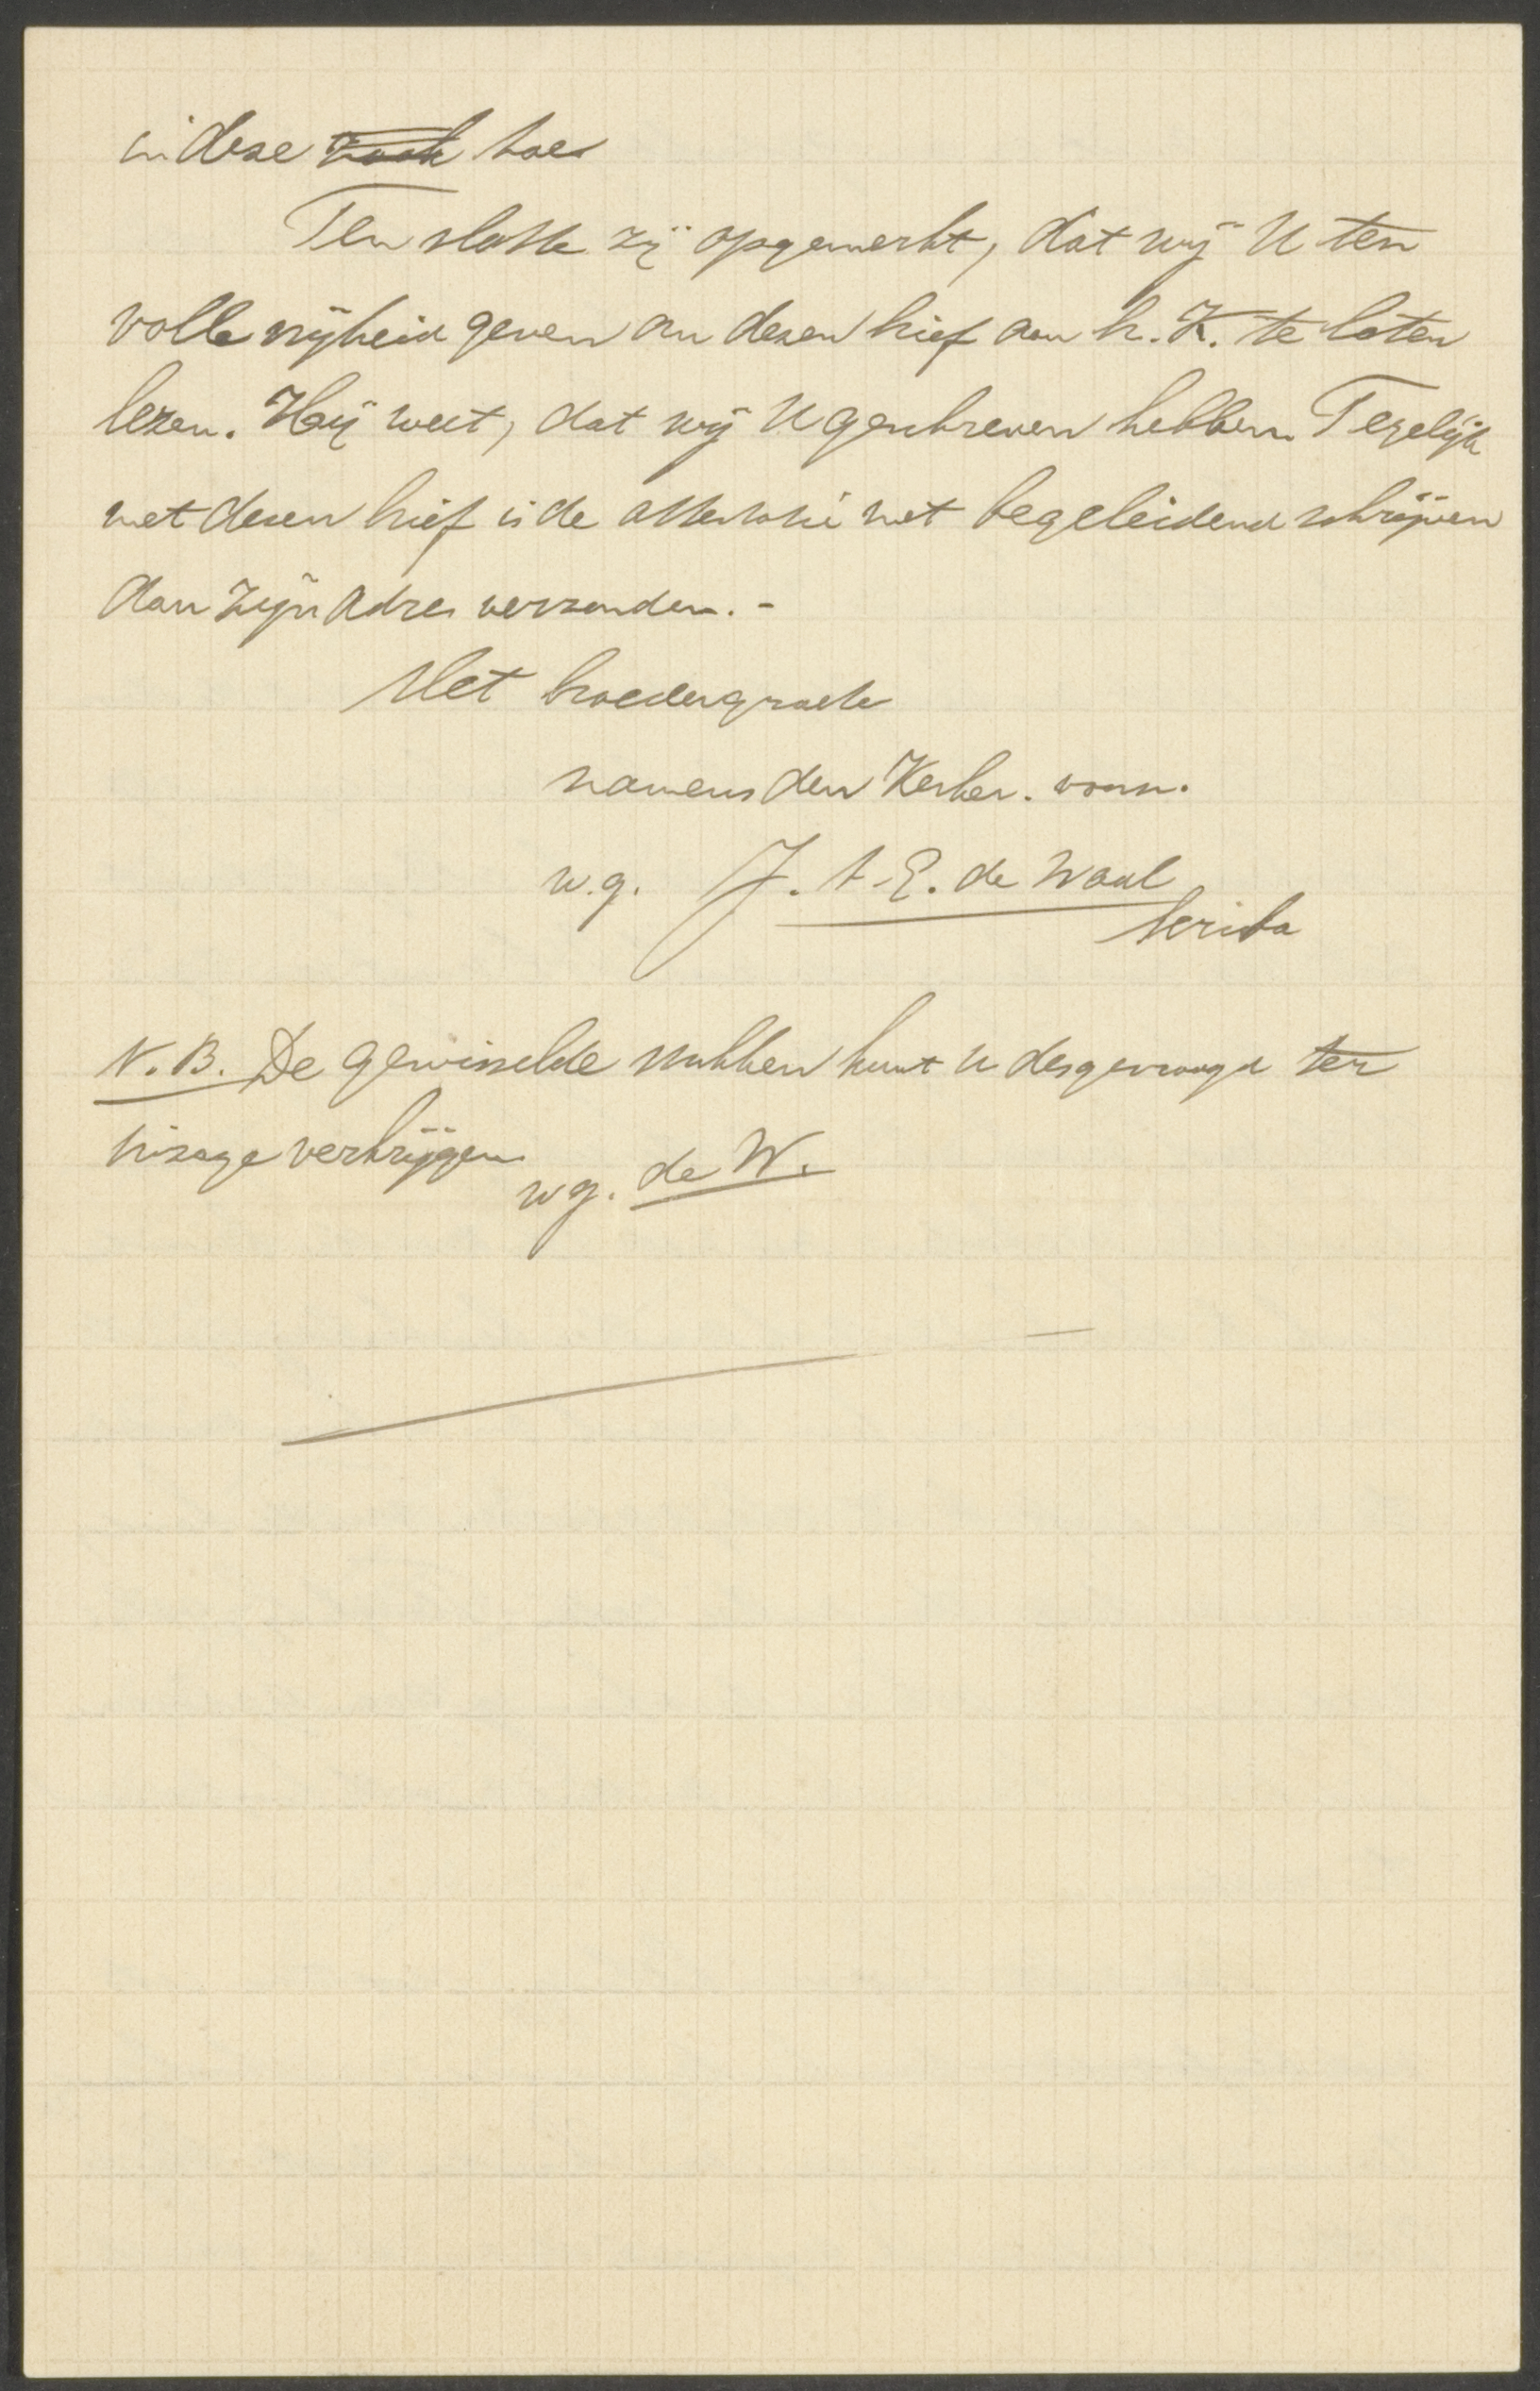 in deze toe.
Ten slotte zij opgemerkt, dat wij U ten
volle vrijheid geven om dezen brief aan br. K. te laten
lezen. Hij weet, dat wij U geschreven hebben. Tegelijk
met dezen brief is de attestatie met begeleidend schrijven
aan zijn adres verzonden. -
Met broedergroete
namens den Kerker. voorn.
w.g. J. A. E. de Waal
scriba
N.B. De gewisselde stukken kunt u desgevraagd ter
visage verkrijgen
wg. de W.